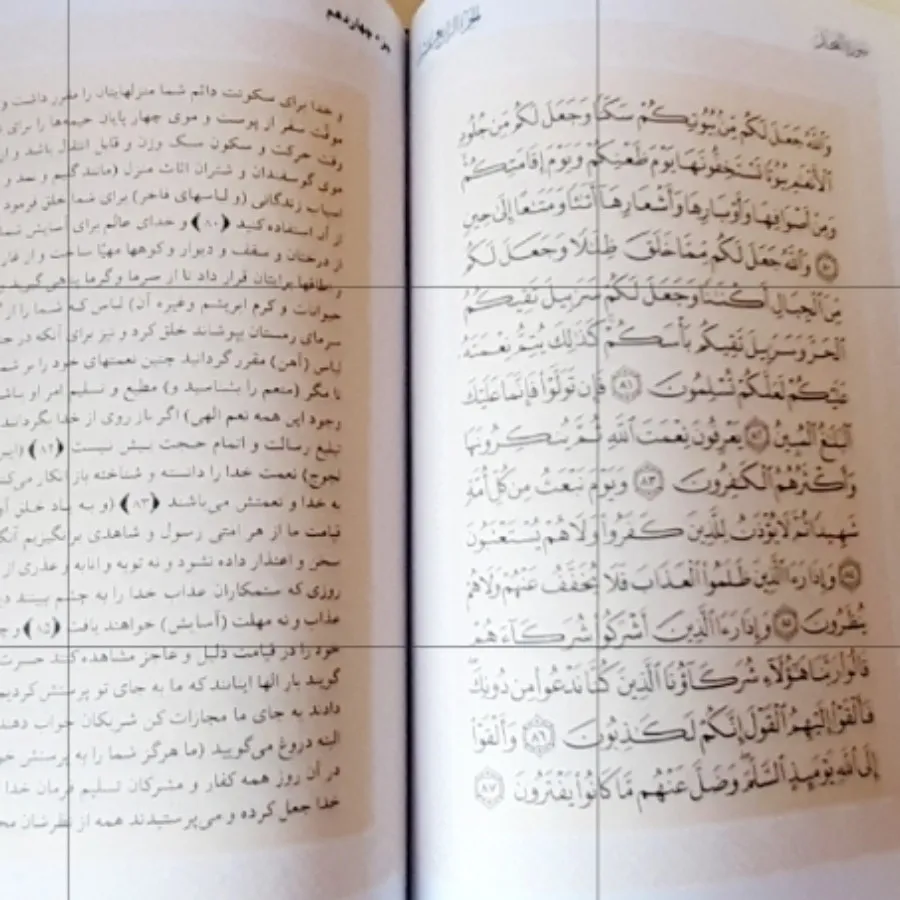 سورة النحل
الجزء الرابع عشر
وَٱللَّهُ جَعَلَ لَكُم مِّنۢ بُيُوتِكُمْ سَكَنًا وَجَعَلَ لَكُم مِّن جُلُودِ
ٱلْأَنْعَٰمِ بُيُوتًا تَسْتَخِفُّونَهَا يَوْمَ ظَعْنِكُمْ وَيَوْمَ إِقَامَتِكُمْ
وَمِنْ أَصْوَافِهَا وَأَوْبَارِهَا وَأَشْعَارِهَآ أَثَٰثًا وَمَتَٰعًا إِلَىٰ حِينٍ
﴿٨٠﴾ وَٱللَّهُ جَعَلَ لَكُم مِّمَّا خَلَقَ ظِلَٰلًا وَجَعَلَ لَكُم
مِّنَ ٱلْجِبَالِ أَكْنَٰنًا وَجَعَلَ لَكُمْ سَرَٰبِيلَ تَقِيكُمُ
ٱلْحَرَّ وَسَرَٰبِيلَ تَقِيكُم بَأْسَكُمْ كَذَٰلِكَ يُتِمُّ نِعْمَتَهُۥ
عَلَيْكُمْ لَعَلَّكُمْ تُسْلِمُونَ ﴿٨١﴾ فَإِن تَوَلَّوْا۟ فَإِنَّمَا عَلَيْكَ
ٱلْبَلَٰغُ ٱلْمُبِينُ ﴿٨٢﴾ يَعْرِفُونَ نِعْمَتَ ٱللَّهِ ثُمَّ يُنكِرُونَهَا
وَأَكْثَرُهُمُ ٱلْكَٰفِرُونَ ﴿٨٣﴾ وَيَوْمَ نَبْعَثُ مِن كُلِّ أُمَّةٍ
شَهِيدًا ثُمَّ لَا يُؤْذَنُ لِلَّذِينَ كَفَرُوا۟ وَلَا هُمْ يُسْتَعْتَبُونَ
﴿٨٤﴾ وَإِذَا رَءَا ٱلَّذِينَ ظَلَمُوا۟ ٱلْعَذَابَ فَلَا يُخَفَّفُ عَنْهُمْ وَلَا هُمْ
يُنظَرُونَ ﴿٨٥﴾ وَإِذَا رَءَا ٱلَّذِينَ أَشْرَكُوا۟ شُرَكَآءَهُمْ
قَالُوا۟ رَبَّنَا هَٰٓؤُلَآءِ شُرَكَآؤُنَا ٱلَّذِينَ كُنَّا نَدْعُوا۟ مِن دُونِكَ
فَأَلْقَوْا۟ إِلَيْهِمُ ٱلْقَوْلَ إِنَّكُمْ لَكَٰذِبُونَ ﴿٨٦﴾ وَأَلْقَوْا۟
إِلَى ٱللَّهِ يَوْمَئِذٍ ٱلسَّلَمَ وَضَلَّ عَنْهُم مَّا كَانُوا۟ يَفْتَرُونَ ﴿٨٧﴾
جزء چهاردهم
و خدا برای سکونت دائم شما منزلهایتان را مقرر داشت و
موقت سفر از پوست و موی چهار پایان خیمه‌ها را برای
وقت حرکت و سکون سبک وزن و قابل انتقال باشد و از
موی گوسفندان و شتران اثاث منزل (مانند گلیم و نمد و
اسباب زندگانی (و لباسهای فاخر) برای شما خلق فرمود
از آن استفاده کنید ﴿۸۰﴾ و خدای عالم برای آسایش شما
از درختان و سقف و دیوار و کوهها مهیّا ساخت و از غار
و اطاقها برایتان قرار داد تا از سرما و گرما پناهی گیرید و
حیوانات و کرم ابریشم وغیره آن) لباس که شما را از
سرمای زمستان بپوشاند خلق کرد و نیز برای آنکه در
لباس (آهن) مقرر گردانید چنین نعمتهای خود را بر شما
تا مگر (منعم را بشناسید و) مطیع و تسلیم امر او باشید
وجود این همه نعم الهی) اگر باز روی از خدا بگردانند
تبلیغ رسالت و اتمام حجت بیش نیست ﴿۸۲﴾
لجوج) نعمت خدا را دانسته و شناخته باز انکار می‌کنند
به خدا و نعمتش می‌باشند ﴿۸۳﴾ (و به یاد خلق آور
قیامت ما از هر امتی رسول و شاهدی برانگیزیم آنگاه
سخر و اعتذار داده نشود و نه توبه و انابه و عذری از
روزی که ستمکاران عذاب خدا را به چشم ببینند
عذاب و نه مهلت (آسایش) خواهند یافت ﴿۸۵﴾ و
خود را در قیامت ذلیل و عاجز مشاهده کنند حسرت
گویند بار الها اینانند که ما به جای تو پرستش کردیم
دادند به جای ما مجازات کن شریکان جواب دهند
البته دروغ می‌گویید (ما هرگز شما را به پرستش
در آن روز همه کفار و مشرکان تسلیم فرمان خدا
خدا جعل کرده و می‌پرستیدند همه از نظرشان